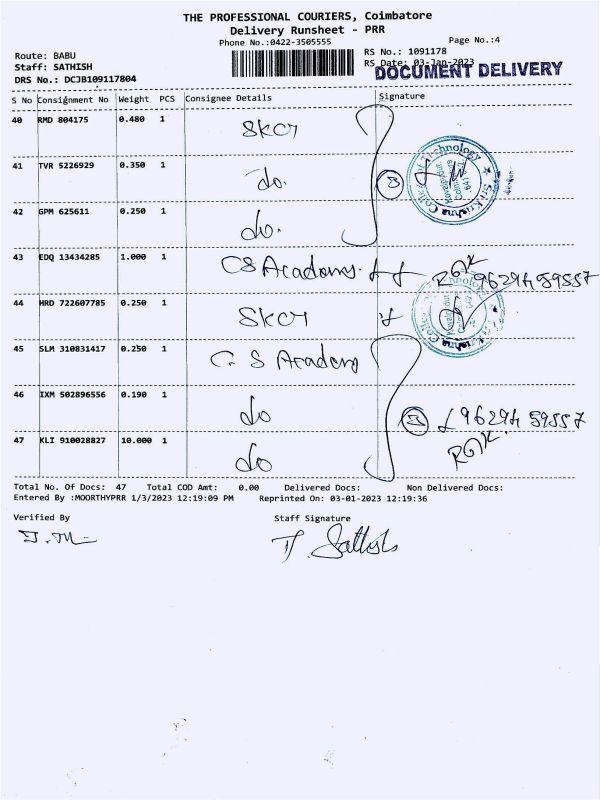 THE PROFESSIONAL COURIERS, Coimbatore
Delivery Runsheet - PRR
Phone No.:0422-3505555
Page No.:4
Route: BABU
RS No.: 1091178
Staff: SATHISH
RS Date: 03-Jan-2023
DRS No.: DCJB109117804
DOCUMENT DELIVERY
S No Consignment No Weight PCS Consignee Details Signature
40 RMD 804175 0.480 1 SKCT
41 TVR 5226929 0.350 1 do. 3
42 GPM 625611 0.250 1 do.
43 EDQ 13434285 1.000 1 CS Academy. 96294 59557
44 HRD 722607785 0.250 1 SKCT
45 SLM 310831417 0.250 1 C. S Academy
46 IXM 502896556 0.190 1 do 3 96294 59557
47 KLI 910028827 10.000 1 do
Sri Krishna College of Technology
Total No. Of Docs: 47 Total COD Amt: 0.00 Delivered Docs: Non Delivered Docs:
Entered By :MOORTHYPRR 1/3/2023 12:19:09 PM Reprinted On: 03-01-2023 12:19:36
Verified By Staff Signature
T. Sathish